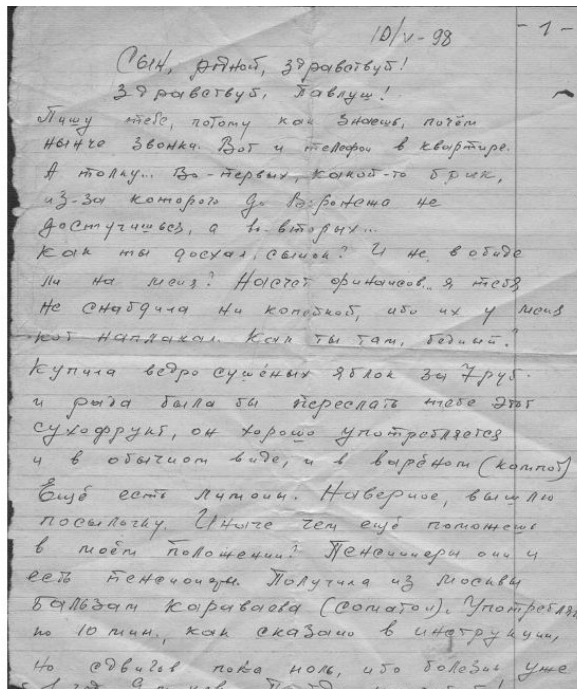 10/V-98
- 1 -
Сын, родной, здравствуй!
Здравствуй, Павлуш!
Пишу тебе, потому как знаешь, почём
нынче звонки. Вот и телефон в квартире.
А толку... Во-первых, какой-то брак,
из-за которого до Воронежа не
достучишься, а во-вторых...
Как ты доехал, сынок? И не в обиде
ли на меня? Насчёт финансов.. я тебя
не снабдила ни копейкой, ибо их у меня
кот наплакал. Как ты там, бедный?
Купила ведро сушёных яблок за 7 руб.
и рада была бы переслать тебе этот
сухофрукт, он хорошо употребляется
и в обычном виде, и в варёном (компот)
Ещё есть лимоны. Наверное, вышлю
посылочку. Иначе чем ещё поможешь
в моём положении? Пенсионеры они и
есть пенсионеры. Получила из Москвы
Бальзам Караваева (соматон). Употребляю
по 10 мин., как сказано в инструкции,
но сдвигов пока ноль, ибо болезнь уже